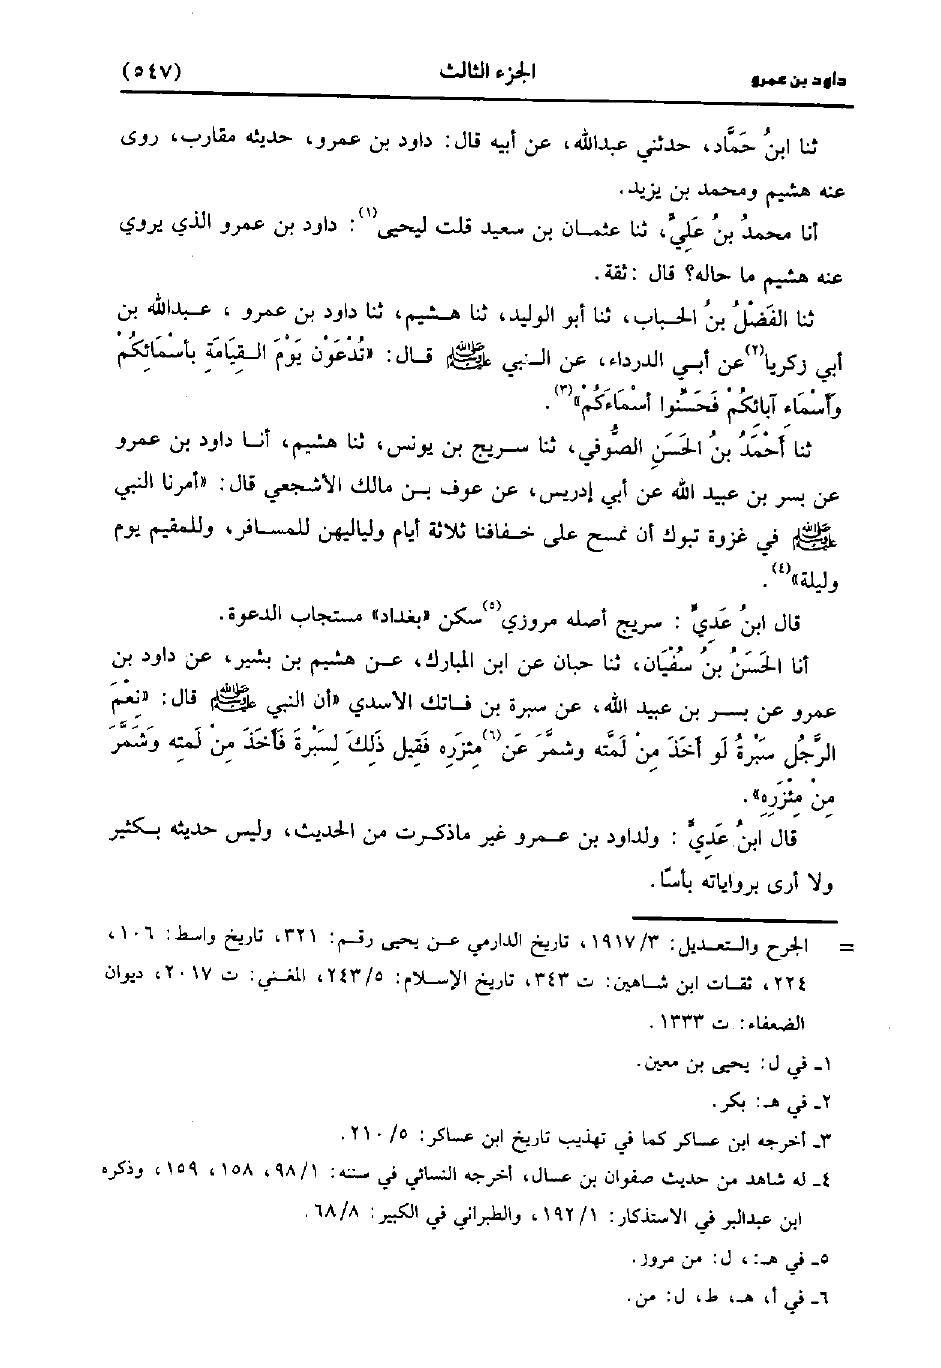 داود بن عمرو الجزء الثالث (٥٤٧)
ثنا ابنُ حَمَّاد، حدثني عبدالله، عن أبيه قال: داود بن عمرو، حديثه مقارب، روى
عنه هشيم ومحمد بن يزيد.
أنا محمدُ بنُ عَلِيٍّ، ثنا عثمان بن سعيد قلت ليحيى(١): داود بن عمرو الذي يروي
عنه هشيم ما حاله؟ قال : ثقة.
ثنا الفَضْلُ بنُ الحباب، ثنا أبو الوليد، ثنا هشيم، ثنا داود بن عمرو ، عبدالله بن
أبي زكريا(٢)عن أبي الدرداء، عن النبي ﷺ قال: «تُدْعَوْن يَوْمَ القِيَامَةِ بأسْمَائِكُمْ
وَأَسْمَاءِ آبَائِكُمْ فَحَسِّنُوا أَسْمَاءَكُمْ»(٣).
ثنا أَحْمَدُ بنُ الحَسَنِ الصُّوفي، ثنا سريج بن يونس، ثنا هشيم، أنا داود بن عمرو
عن بسر بن عبيد الله عن أبي إدريس، عن عوف بن مالك الأشجعي قال: «أمرنا النبي
ﷺ في غزوة تبوك أن نمسح على خفافنا ثلاثة أيام ولياليهن للمسافر، وللمقيم يوم
وليلة»(٤).
قال ابنُ عَدِيٍّ : سريج أصله مروزي(٥)سكن «بغداد» مستجاب الدعوة.
أنا الحَسَنُ بنُ سُفْيَان، ثنا حبان عن ابن المبارك، عن هشيم بن بشير، عن داود بن
عمرو عن بسر بن عبيد الله، عن سبرة بن فاتك الأسدي «أن النبي ﷺ قال: «نِعْمَ
الرَّجُل سَبْرةُ لَو أخَذَ مِنْ لَمَّته وشمَّرَ عَن(٦)مئزره فَقِيل ذَلِكَ لِسَبْرةَ فَأَخَذَ مِنْ لَمته وَشَمَّرَ
مِنْ مِئْزَرِهِ».
قال ابنُ عَدِيٍّ : ولداود بن عمرو غير ماذكرت من الحديث، وليس حديثه بكثير
ولا أرى برواياته بأسًا.
= الجرح والتعديل: ١٩١٧/٣، تاريخ الدارمي عن يحيى رقم: ٣٢١، تاريخ واسط: ١٠٦،
٢٢٤، ثقات ابن شاهين: ت ٣٤٣، تاريخ الإسلام: ٢٤٣/٥، المغني: ت ٢٠١٧، ديوان
الضعفاء: ت ١٣٣٣.
١ـ في ل: يحيى بن معين.
٢ـ في هـ: بكر.
٣ـ أخرجه ابن عساكر كما في تهذيب تاريخ ابن عساكر: ٢١٠/٥.
٤ـ له شاهد من حديث صفوان بن عسال، أخرجه النسائي في سننه: ٩٨/١، ١٥٨، ١٥٩، وذكره
ابن عبدالبر في الاستذكار: ١٩٢/١، والطبراني في الكبير: ٦٨/٨.
٥ـ في هـ:، ل: من مروز.
٦ـ في أ، هـ، ط، ل: من.